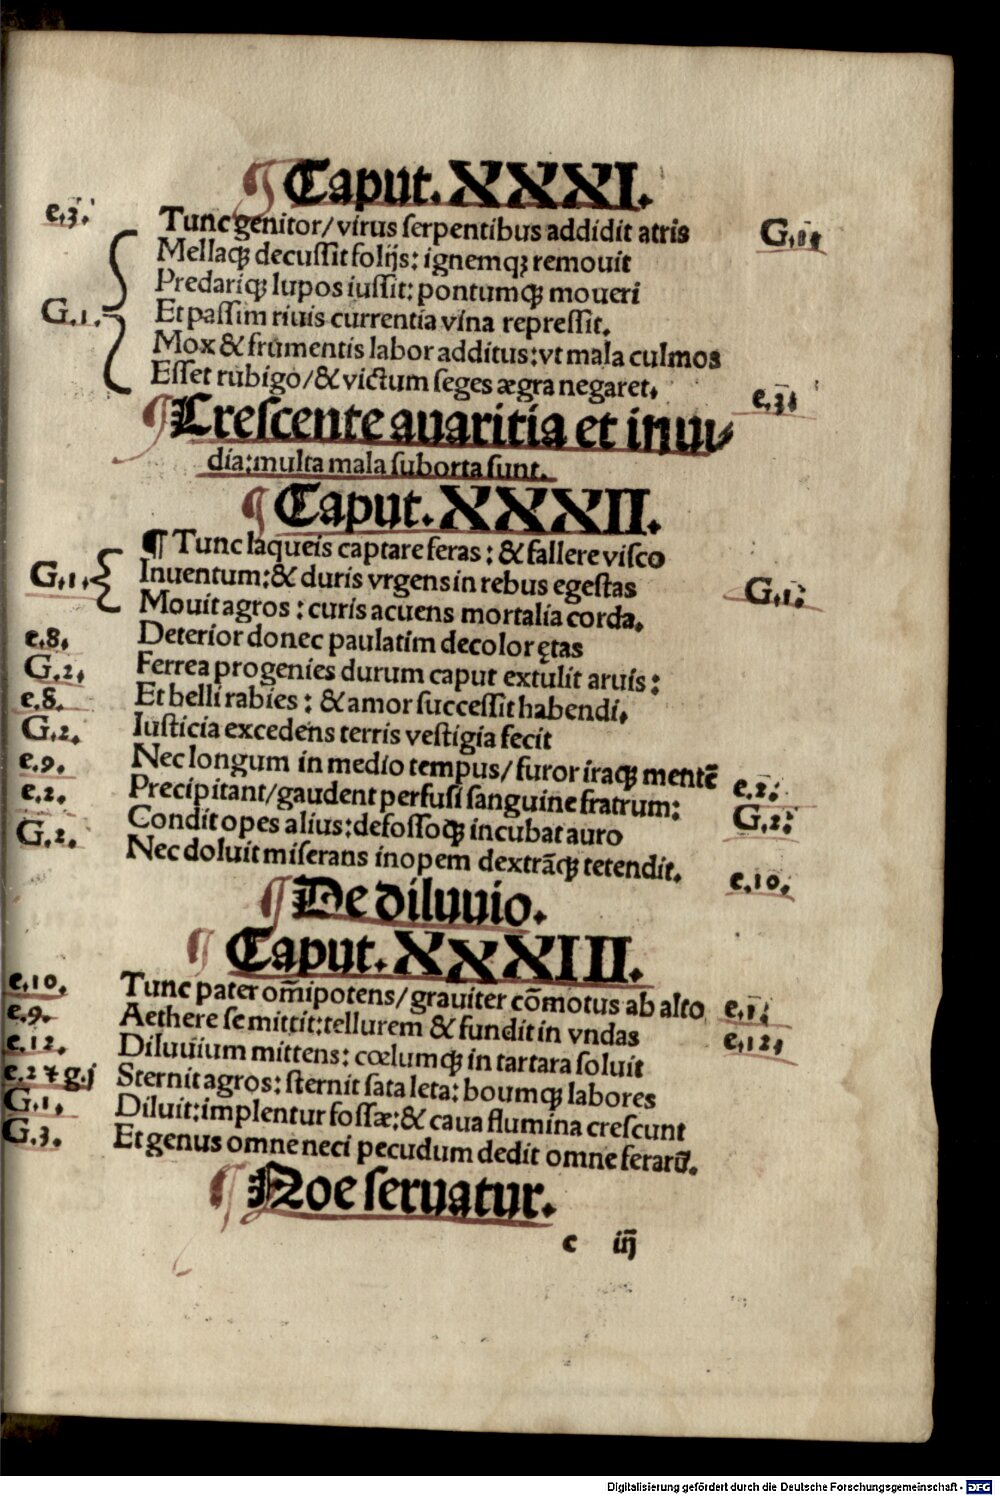 ¶ Caput. XXXI.
e.3. Tunc genitor/ virus serpentibus addidit atris G.1.
Mellaqꝫ decussit folijs: ignemqꝫ remouit
Predariqꝫ lupos iussit: pontumqꝫ moueri
G.1. Et passim riuis currentia vina repressit.
Mox & frumentis labor additus: vt mala culmos
Esset rubigo/ & victum seges ægra negaret. e.3.
¶ Crescente auaritia et inui⸗
dia: multa mala suborta sunt.
¶ Caput. XXXII.
¶ Tunc laqueis captare feras: & fallere visco
G.1. Inuentum: & duris vrgens in rebus egestas G.1.
Mouit agros: curis acuens mortalia corda.
e.8. Deterior donec paulatim decolor ętas
G.2. Ferrea progenies durum caput extulit aruis:
e.8. Et belli rabies: & amor successit habendi.
G.2. Iusticia excedens terris vestigia fecit
e.9. Nec longum in medio tempus/ furor iraqꝫ mentē e.2.
e.2. Precipitant/ gaudent perfusi sanguine fratrum: G.2.
G.2. Condit opes alius: defossoqꝫ incubat auro
Nec doluit miserans inopem dextrāqꝫ tetendit. e.10.
¶ De diluuio.
¶ Caput. XXXIII.
e.10. Tunc pater om̄ipotens/ grauiter cōmotus ab alto e.1.
e.9. Aethere se mittit: tellurem & fundit in vndas e.12.
e.12. Diluuium mittens: cœlumqꝫ in tartara soluit
e.2 ⁊ g.j Sternit agros: sternit sata leta: boumqꝫ labores
G.1. Diluit: implentur fossæ: & caua flumina crescunt
G.3. Et genus omne neci pecudum dedit omne ferarū.
¶ Noe seruatur.
c iij
Digitalisierung gefördert durch die Deutsche Forschungsgemeinschaft - DFG